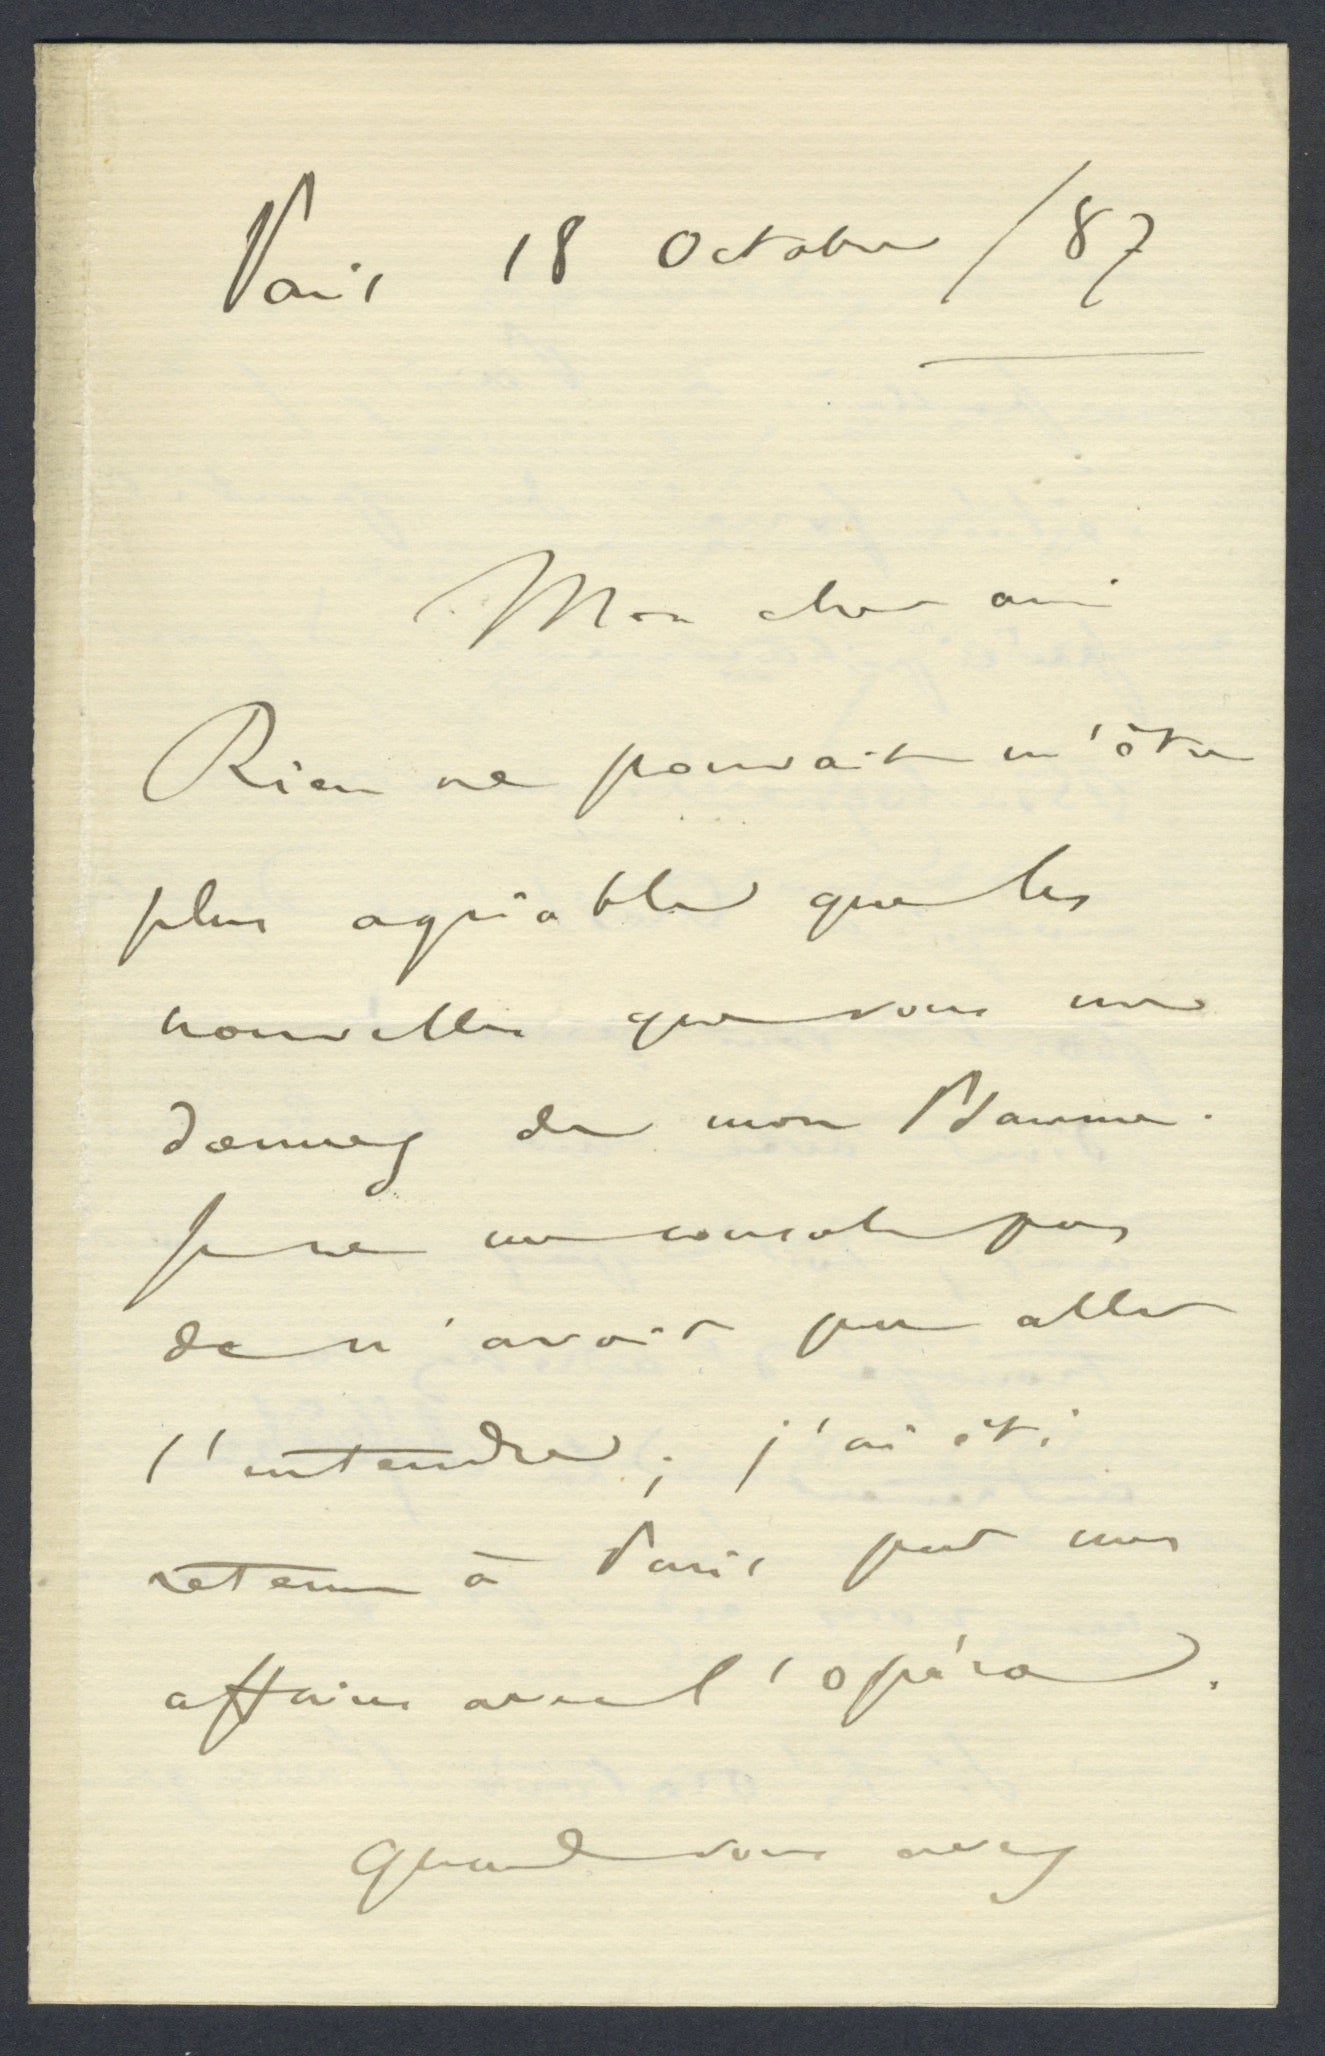 Paris 18 Octobre /87
Mon cher ami
Rien ne pouvait m'être
plus agréable que les
nouvelles que vous me
donnez de mon Psaume.
Je ne me console pas
de n'avoir pu aller
l'entendre; j'ai été
retenu à Paris par mes
affaires avec l'opéra.
Quand vous avez